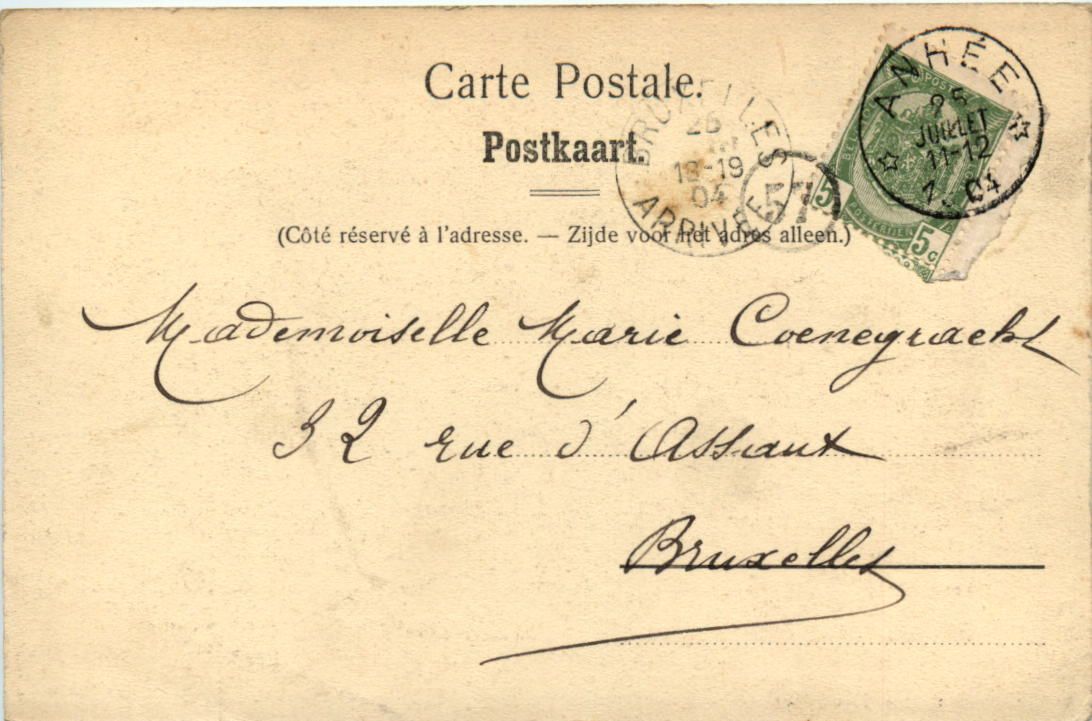 Carte Postale.
Postkaart.
(Côté réservé à l'adresse. — Zijde voor het adres alleen.)
BRUXELLES
26
18-19
04
ARRIVÉE
57
ANHÉE
26
JUILLET
11-12
1904
5
5c
POSTERIJEN
Mademoiselle Marie Coenegracht
32 rue d'Assaut
Bruxelles